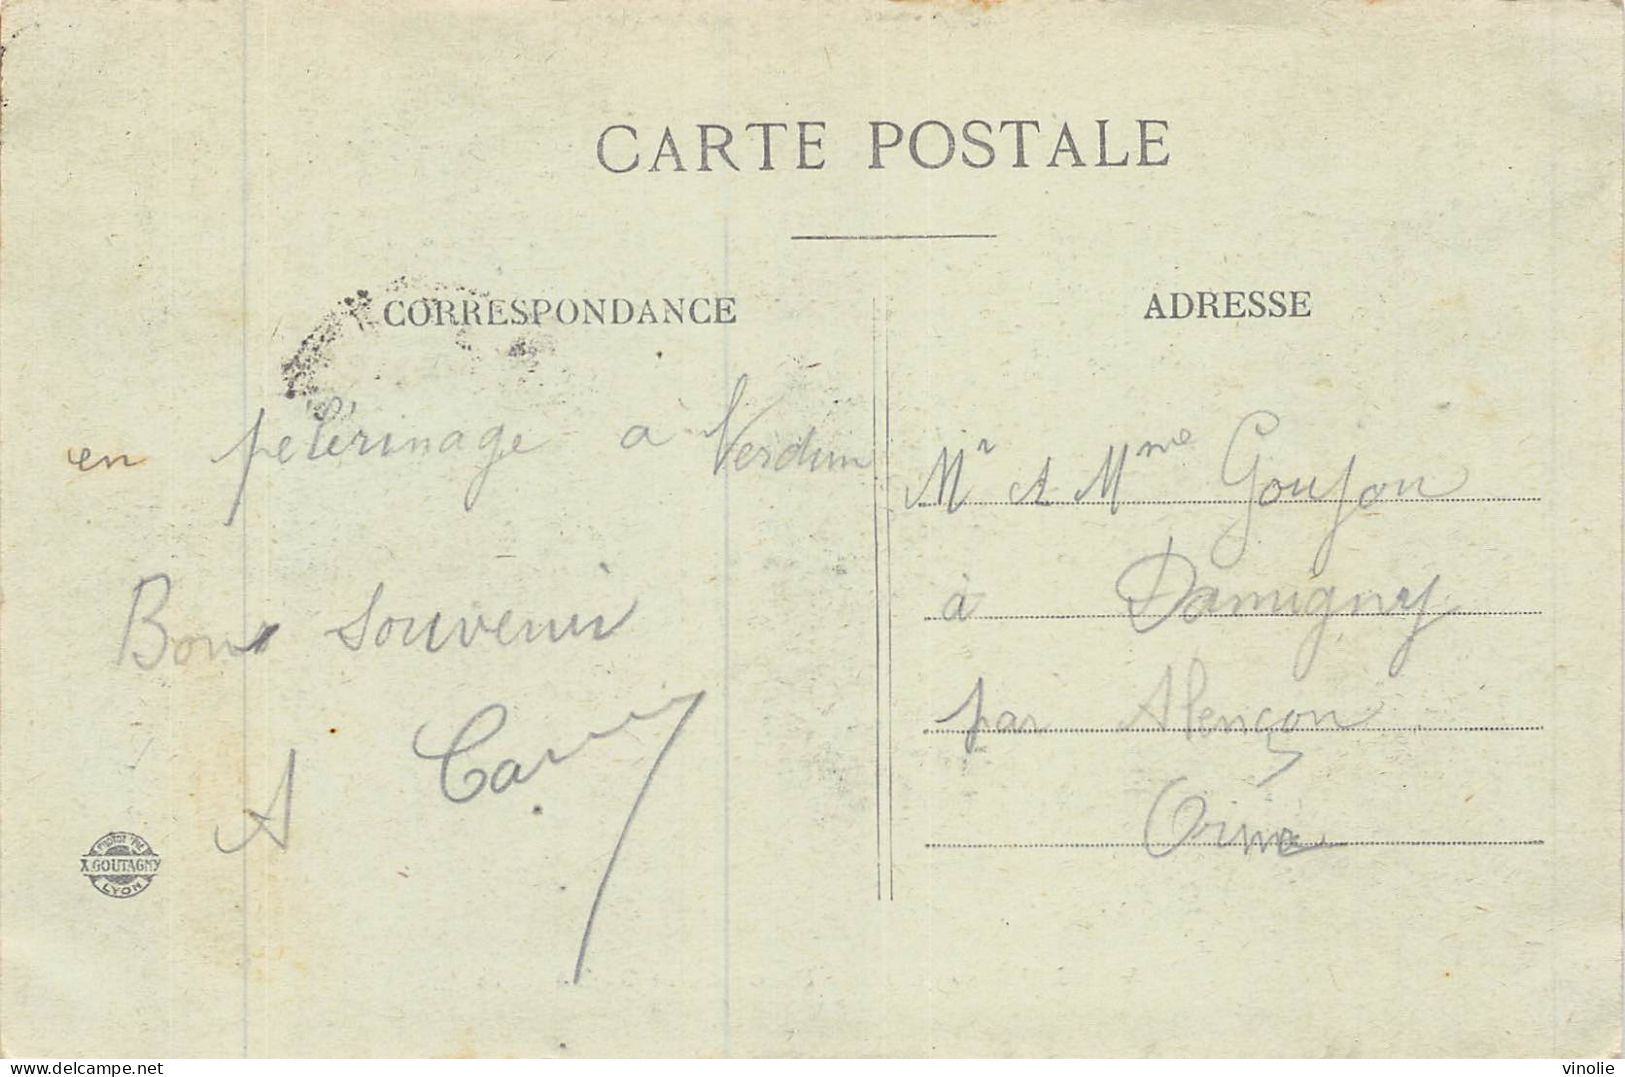 CARTE POSTALE
CORRESPONDANCE
en pelérinage a Verdun
Bons souvenir
A
A. GOUTAGNY
LYON
ADRESSE
Mr et Mme Goujon
à Damigny
par Alençon
Orne
delcampe.net
vinolie